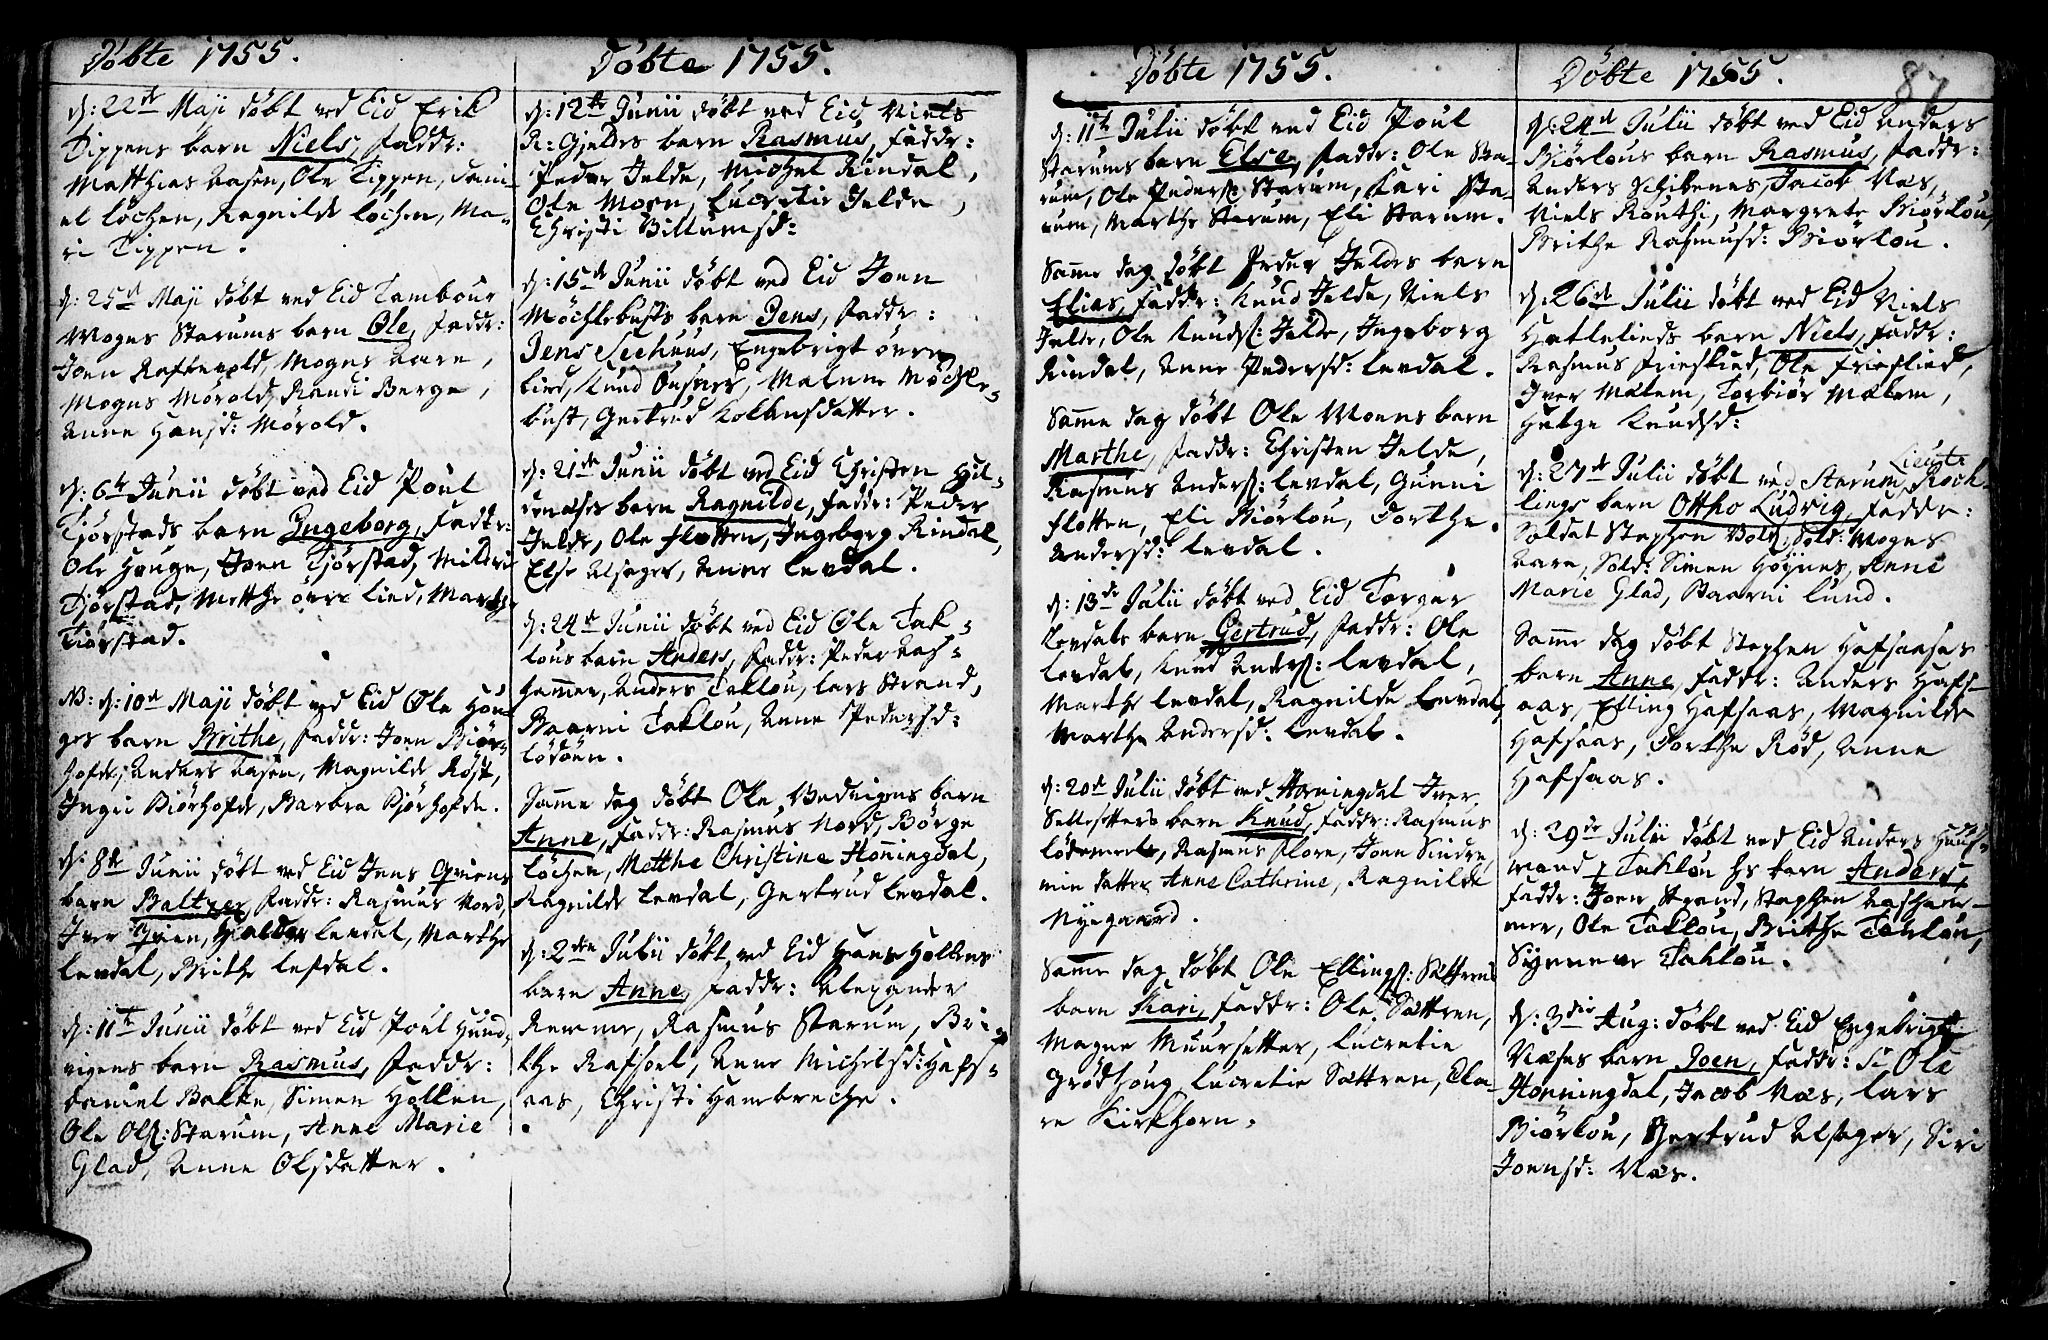 Döbte 1755.
d: 22de Maji döbt ved Eid Erik
Tippens barn Niels, Faddr:
Matthias Aasen, Ole Tippen, Dani-
el Löchen, Ragnilde Löchen, Ma-
ri Tippen.
d: 25de Maji döbt ved Eid Tambour
Mogns Starums barn Ole, Faddr:
Joen Raftevold, Mogns Aare,
Mogns Mörold, Randi Berge,
Anne Hansd: Mörold.
d: 6te Junii döbt ved Eid Poul
Tjörstads barn Ingeborg, Faddr:
Ole Hauge, Joen Tjörstad, Mildri
Tjörstad, Metthe övre Lied, Marthe
Tiörstad.
N: d: 10de Maji döbt ved Eid Ole Hou-
ges barn Brithe, Faddr: Joen Biör-
hofde, Anders Aasen, Magnilde Röst,
Inger Biörhofde, Barbra Bjørhofde.
d: 8de Junii döbt ved Eid Jens
barn Baltzer, Faddr: Rasmus Nord,
Iver Levdal, Marthe
Levdal, Brithe Lefdal.
d: 11te Junii döbt ved Eid Poul Hund-
vigens barn Rasmus, Faddr:
Daniel Balke, Simen Hollen,
Ole Ols: Starum, Anne Marie
Glad, Anne Olsdatter.
Döbte 1755.
d: 12te Junii döbt ved Eid Niels
R: Gjeldes barn Rasmus, Faddr:
Peder Jelde, Michel Rindal,
Ole Moen, Lucretie Jelde,
Christi Villumsd:
d: 15de Junii döbt ved Eid Joen
Möchlebusts barn Jens, Faddr:
Jens Seehuus, Engebrigt övre
lied, Knud Malene Möchle-
bust, Gertrud Kolbensdatter.
d: 21de Junii döbt ved Eid Christen Hil-
denæses barn Ragnilde, Faddr: Peder
Jelde, Ole Flotten, Ingeborg Rindal,
Else Alsager, Anne Levdal.
d: 24de Junii döbt ved Eid Ole Tak-
lous barn Anders, Faddr: Peder Aas-
hammer, Anders Taklou, Lars Strand,
Baarni Taklou, Anne Pedersd:
Lödöen.
Samme dag döbt Ole Nedvigens barn
Anne, Faddr: Rasmus Nord, Börge
Löchen, Metthe Christine Honningdal,
Ragnilde Levdal, Gertrud Levdal.
d: 2den Julii döbt ved Eid Hans Hollens
barn Anne, Faddr: Alexander
Remme, Rasmus Starum, Bri-
the Rafsoel, Anne Michelsd: Hafs-
aas, Christi Hambreche.
Döbte 1755.
d: 11te Julii döbt ved Eid Poul
Starums barn Else, Faddr: Ole Sta-
rum, Ole Peders: Starum, Kari Sta-
rum, Marthe Starum, Eli Starum.
Samme dag döbt Peder Jeldes barn
Elias, Faddr: Knud Jelde, Niels
Jelde, Ole Knuds: Jelde, Ingeborg
Rindal, Anne Pedersd: Levdal.
Samme dag döbt Ole Moens barn
Marthe, Faddr: Christen Jelde,
Rasmus Anders: Levdal, Gunni
Flotten, Eli Biörlou, Dorthe
Andersd: Levdal.
d: 13de Julii döbt ved Eid Torger
Levdals barn Gertrud, Faddr: Ole
Levdal, Knud Anders: Levdal,
Marthe Levdal, Ragnilde Levdal,
Marthe Andersd: Levdal.
d: 20de Julii döbt ved Horningdal Iver
Sellesetters barn Knud, Faddr: Rasmus
Lödemeels, Rasmus Flore, Joen Sindre,
min datter Anne Cathrine, Ragnilde
Nygaard.
Samme dag döbt Ole Ellings: Sættrens
barn Kari, Faddr: Ole Sættren,
Magne Muursetter, Lucretie
Grödhoug, Lucretie Sættren, Cla-
re Kirkhorn.
Döbte 1755.
87
d: 24de Julii döbt ved Eid Anders
Biörlous barn Rasmus, Faddr:
Anders Schibenes, Jacob Næs,
Niels Routhi, Margrete Biörlou,
Brithe Rasmusd: Biörlou.
d: 26de Julii döbt ved Eid Niels
Hattelieds barn Niels, Faddr:
Rasmus Frieslied, Ole Frieslied,
Iver Mælem, Torbiör Mælem,
Helge Knudsd:
d: 27de Julii döbt ved Starum Lieute Koch-
lings barn Ottho Ludvig, Faddr:
Soldat Stephen Vold, Sold: Mogns
Aare, Sold: Simen Höynes, Anne
Marie Glad, Baarni Lund.
Samme dag döbt Stephen Hafsaases
barn Anne, Faddr: Anders Hafs-
aas, Elling Hafsaas, Magnilde
Hafsaas, Dorthe Röd, Anne
Hafsaas.
d: 29de Julii döbt ved Eid Anders Huus-
mand i Taklou hs barn Anders,
Faddr: Joen Strand, Stephen Aasham-
mer, Ole Taklou, Brithe Taklou,
Synneve Taklou.
d: 3die Aug: döbt ved Eid Engebrigt
Næses barn Joen, Faddr: Sr Ole
Honningdal, Jacob Næs, Lars
Biörlou, Gertrud Alsager, Siri
Joensd: Næs.